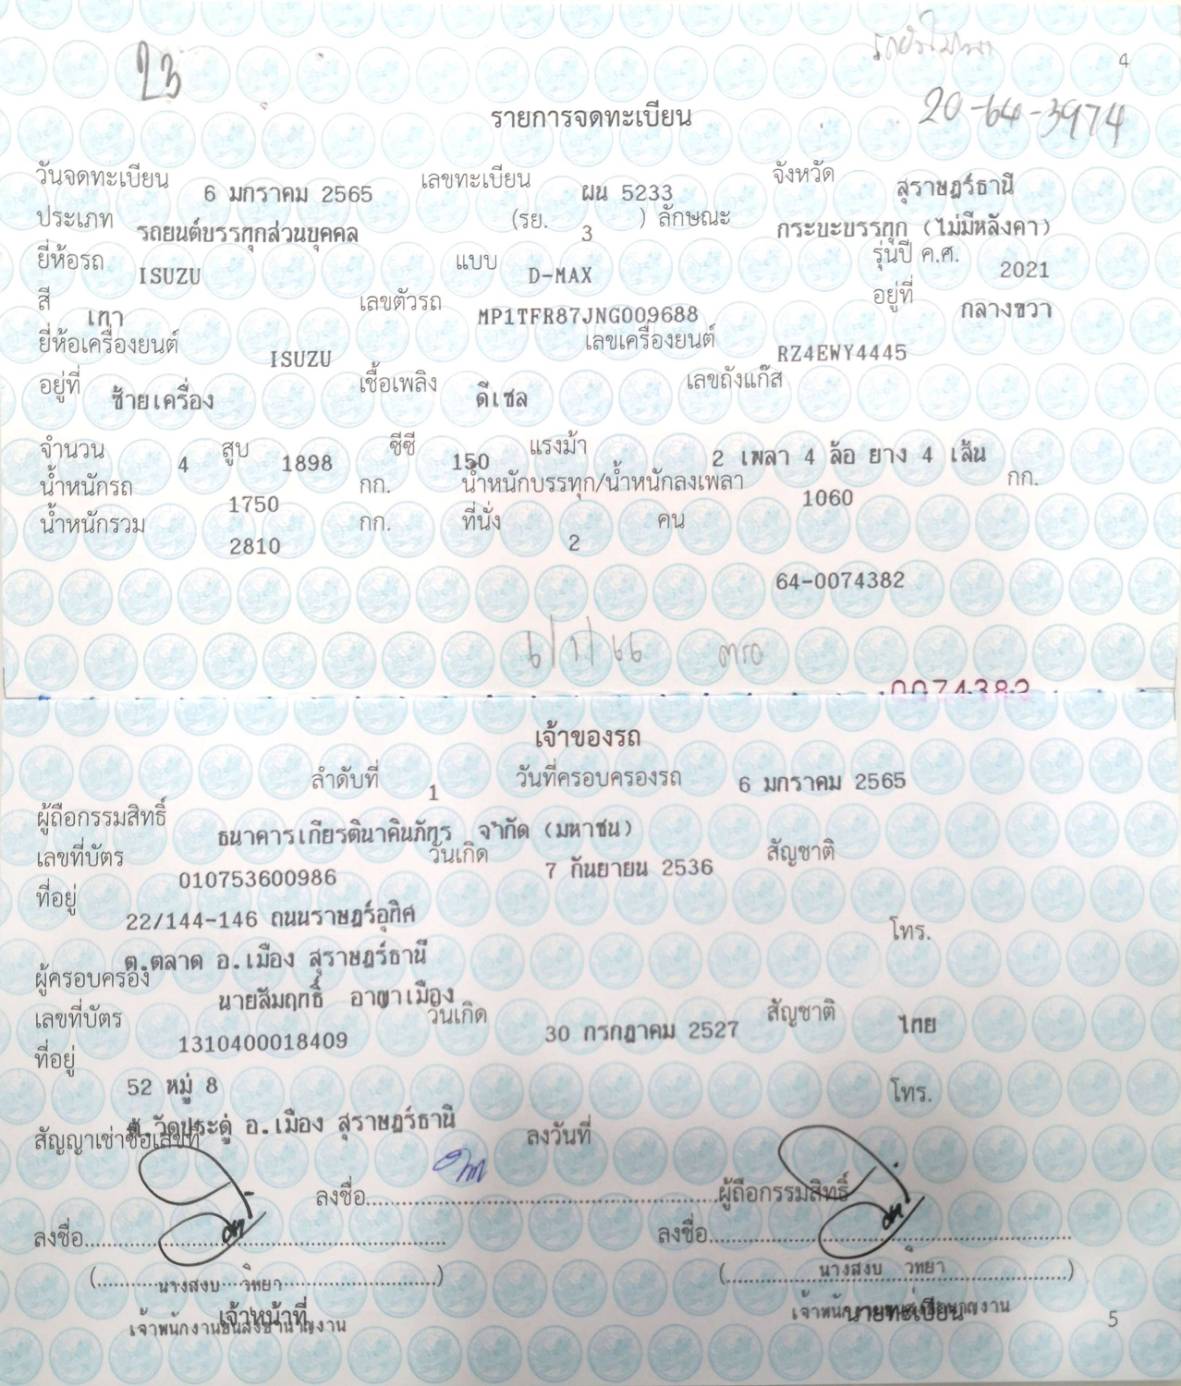 4
23
20-64-3974
รายการจดทะเบียน
วันจดทะเบียน 6 มกราคม 2565 เลขทะเบียน ผน 5233 จังหวัด สุราษฎร์ธานี
ประเภท รถยนต์บรรทุกส่วนบุคคล (รย. 3 ) ลักษณะ กระบะบรรทุก (ไม่มีหลังคา)
ยี่ห้อรถ ISUZU แบบ D-MAX รุ่นปี ค.ศ. 2021
สี เทา เลขตัวรถ MP1TFR87JNG009688 อยู่ที่ กลางขวา
ยี่ห้อเครื่องยนต์ ISUZU เลขเครื่องยนต์ RZ4EWY4445
อยู่ที่ ซ้ายเครื่อง เชื้อเพลิง ดีเซล เลขถังแก๊ส
จำนวน 4 สูบ 1898 ซีซี 150 แรงม้า 2 เพลา 4 ล้อ ยาง 4 เส้น
น้ำหนักรถ 1750 กก. น้ำหนักบรรทุก/น้ำหนักลงเพลา 1060 กก.
น้ำหนักรวม 2810 กก. ที่นั่ง 2 คน
64-0074382
6/1/66 ตรอ
0074382
เจ้าของรถ
ลำดับที่ 1 วันที่ครอบครองรถ 6 มกราคม 2565
ผู้ถือกรรมสิทธิ์ ธนาคารเกียรตินาคินภัทร จำกัด (มหาชน)
เลขที่บัตร 010753600986 วันเกิด 7 กันยายน 2536 สัญชาติ
ที่อยู่ 22/144-146 ถนนราษฎร์อุทิศ โทร.
ต.ตลาด อ.เมือง สุราษฎร์ธานี
ผู้ครอบครอง นายสัมฤทธิ์ อาษาเมือง
เลขที่บัตร 1310400018409 วันเกิด 30 กรกฎาคม 2527 สัญชาติ ไทย
ที่อยู่ 52 หมู่ 8 โทร.
ต.วัดประดู่ อ.เมือง สุราษฎร์ธานี
สัญญาเช่าซื้อเลขที่ ลงวันที่
ลงชื่อ ผู้ถือกรรมสิทธิ์
ลงชื่อ ลงชื่อ
(นางสงบ วิทยา) (นางสงบ วิทยา)
เจ้าหน้าที่ นายทะเบียน
เจ้าพนักงานขนส่งชำนาญงาน เจ้าพนักงานขนส่งชำนาญงาน
5